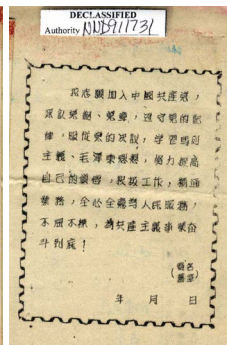 DECLASSIFIED
Authority NND911731
我志願加入中國共產党，
承認党綱、党章，遵守党的紀
律，服從党的決議，学習馬列
主義、毛澤東思想，努力提高
自己的覺悟，积极工作，精通
業務，全心全意為人民服務，
不屈不撓，為共產主義事業奋
斗到底！
年 月 日